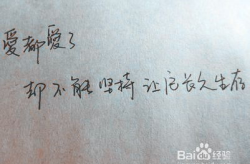 爱都爱了
却不能坚持让它长久生存
Bai度百科